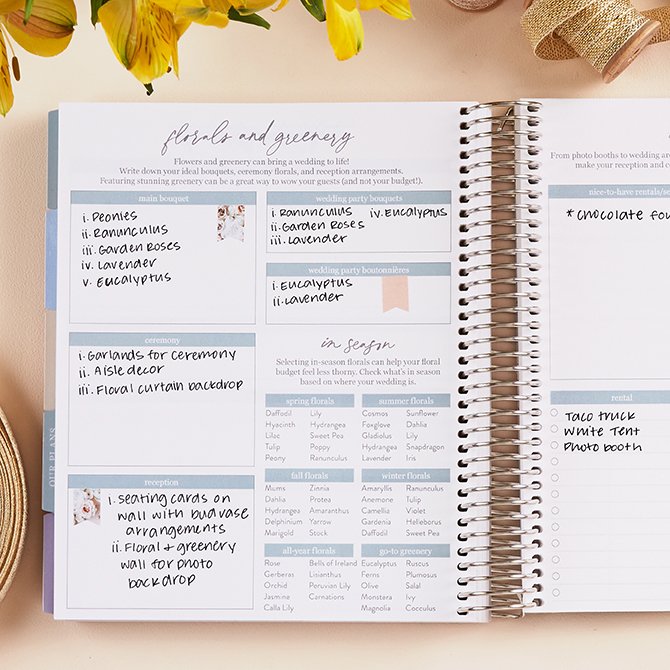 florals and greenery
Flowers and greenery can bring a wedding to life!
Write down your ideal bouquets, ceremony florals, and reception arrangements.
Featuring stunning greenery can be a great way to wow your guests (and not your budget!).
main bouquet
i. Peonies
ii. Ranunculus
iii. Garden Roses
iv. Lavender
v. Eucalyptus
wedding party bouquets
i. Ranunculus iv. Eucalyptus
ii. Garden Roses
iii. Lavender
wedding party boutonnières
i. Eucalyptus
ii. Lavender
ceremony
i. Garlands for ceremony
ii. Aisle decor
iii. Floral curtain backdrop
reception
i. Seating cards on
wall with bud vase
arrangements
ii. Floral & greenery
wall for photo
backdrop
in season
Selecting in-season florals can help your floral
budget feel less thorny. Check what's in season
based on where your wedding is.
spring florals
Daffodil Lily
Hyacinth Hydrangea
Lilac Sweet Pea
Tulip Poppy
Peony Ranunculus
summer florals
Cosmos Sunflower
Foxglove Dahlia
Gladiolus Lily
Hydrangea Snapdragon
Lavender Iris
fall florals
Mums Zinnia
Dahlia Protea
Hydrangea Amaranthus
Delphinium Yarrow
Marigold Stock
winter florals
Amaryllis Ranunculus
Anemone Tulip
Camellia Violet
Gardenia Helleborus
Daffodil Sweet Pea
all-year florals
Rose Bells of Ireland
Gerberas Lisianthus
Orchid Peruvian Lily
Jasmine Carnations
Calla Lily
go-to greenery
Eucalyptus Ruscus
Ferns Plumosus
Olive Salal
Monstera Ivy
Magnolia Cocculus
OUR PLANS
From photo booths to wedding
make your reception and
nice-to-have
* Chocolate
rental
Taco truck
White Tent
Photo booth